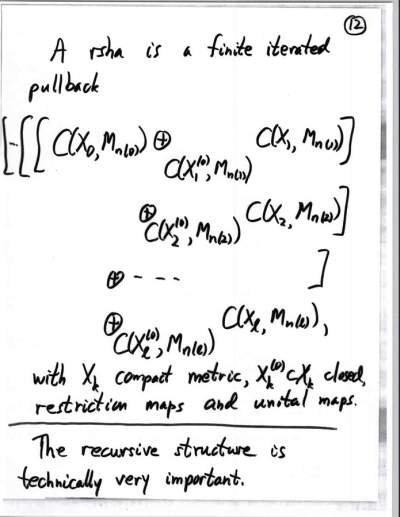 12
A rsha is a finite iterated
pullback
[...[[ C(X₀, Mₙ₍₀₎) ⊕_{C(X₁⁽⁰⁾, Mₙ₍₁₎)} C(X₁, Mₙ₍₁₎)]
⊕_{C(X₂⁽⁰⁾, Mₙ₍₂₎)} C(X₂, Mₙ₍₂₎)]
⊕ - - - ]
⊕_{C(X_ℓ⁽⁰⁾, M_{n(ℓ)})} C(X_ℓ, M_{n(ℓ)}),
with X_k compact metric, X_k⁽⁰⁾ ⊂ X_k closed,
restriction maps and unital maps.
The recursive structure is
technically very important.